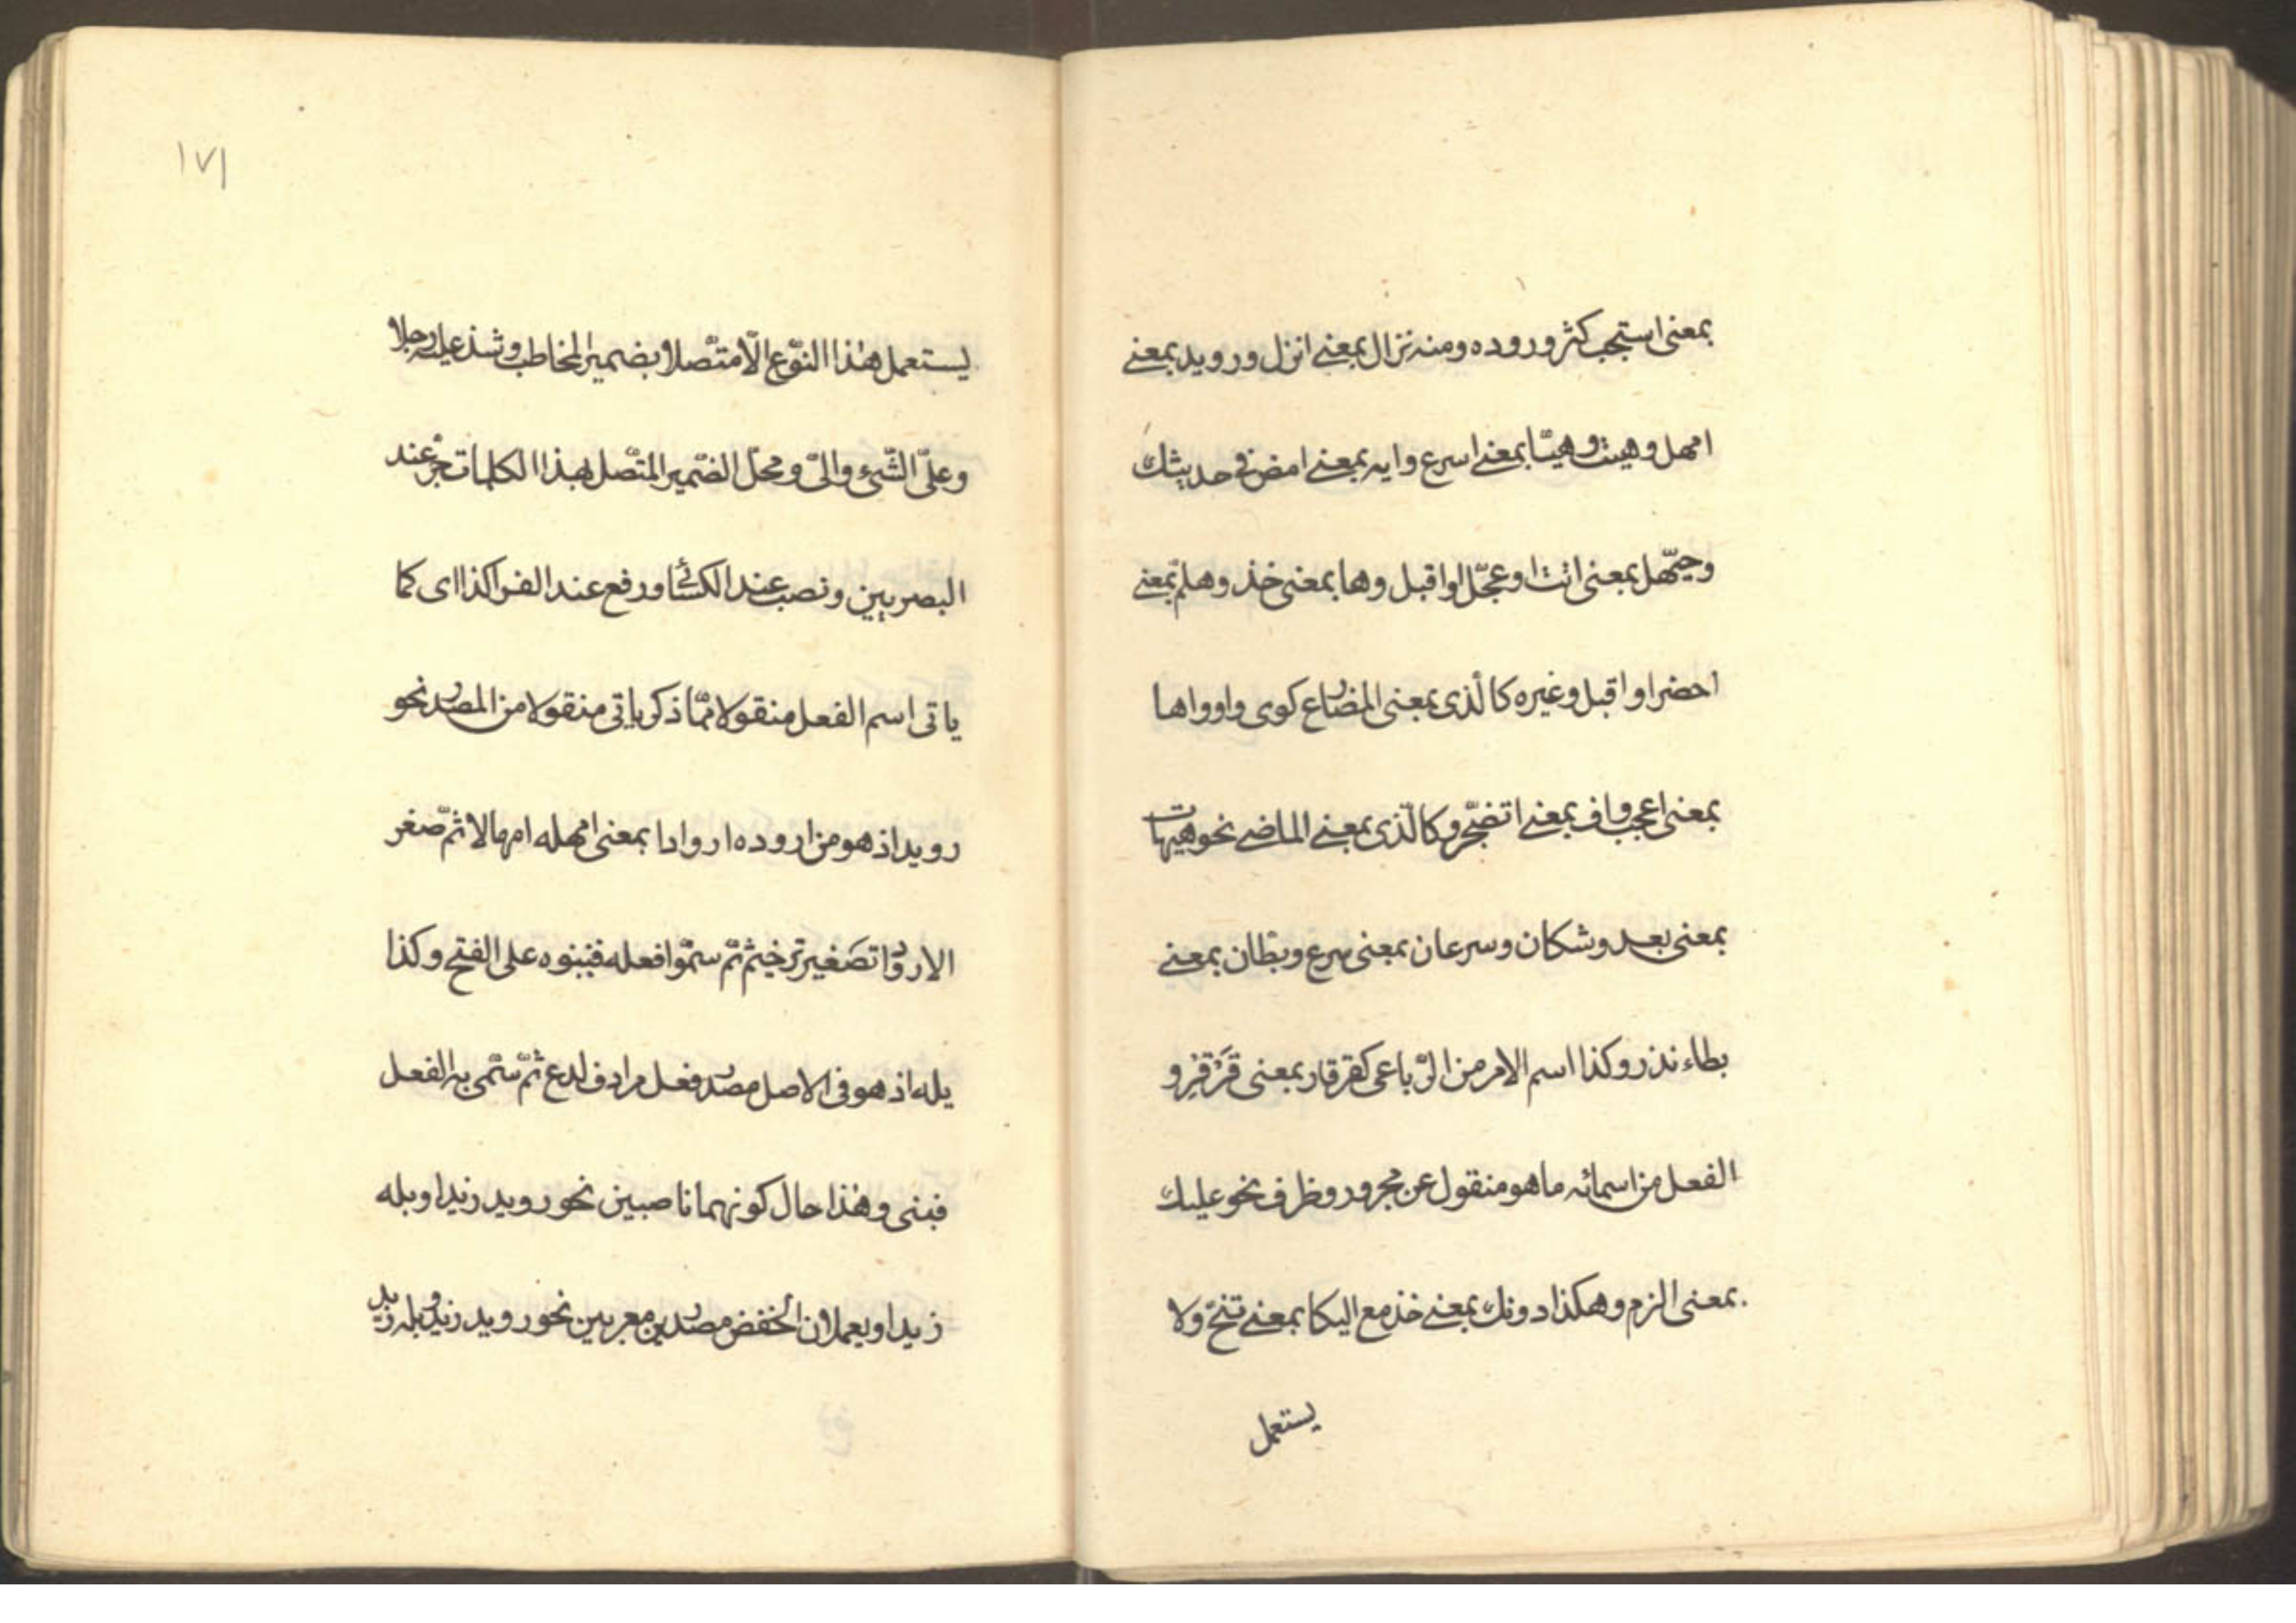 بمعنى استجب كثر وروده ومنه نزال بمعنى انزل ورويد بمعنى
امهل وهيت وهيّا بمعنى اسرع وايه بمعنى امض فى حديثك
وحيّهل بمعنى ائت او عجّل او اقبل وها بمعنى خذ وهلمّ بمعنى
احضر او اقبل وغيره كالّذى بمعنى المضارع كوى واوواها
بمعنى اعجب واف بمعنى اتضجّر وكالّذى بمعنى الماضى نحو هيهات
بمعنى بعد وشكان وسرعان بمعنى سرع وبطان بمعنى
بطاء نذر وكذا اسم الامر من الرّباعى كقرقار بمعنى قَرْقِرْ و
الفعل من اسمائه ما هو منقول عن مجرور وظرف نحو عليك
بمعنى الزم وهكذا دونك بمعنى خذ مع اليكا بمعنى تنحّ ولا
يستعمل
١٧١
يستعمل هذا النّوع الّا متّصلا بضمير المخاطب وشذ عليه رجلا
وعلىّ الشّىء والىّ ومحلّ الضّمير المتّصل بهذا الكلمات جرّ عند
البصريين ونصب عند الكسائى ورفع عند الفرا كذا اى كما
ياتى اسم الفعل منقولا ممّا ذكر ياتى منقولا من المصدر نحو
رويد اذ هو من اروده اروادا بمعنى امهله امهالا ثمّ صغر
الارواد تصغير ترخيم ثمّ سمّوا فعله فبنوه على الفتح وكذا
بله اذ هو فى الاصل مصدر فعل مرادف لدع ثمّ سمّى به الفعل
فبنى وهذا حال كونهما ناصبين نحو رويد زيدا وبله
زيدا ويعملان الخفض مصدرين معربين نحو رويد زيد وبله زيد